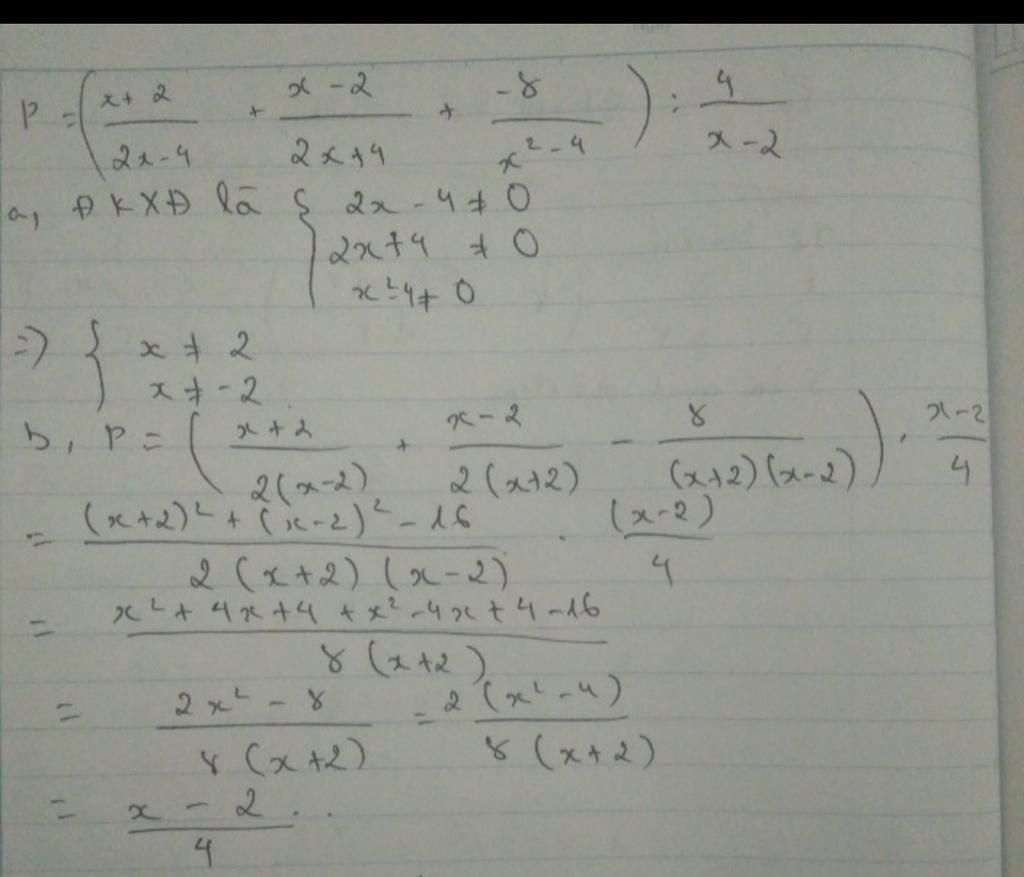 P = ( (x+2)/(2x-4) + (x-2)/(2x+4) + (-8)/(x²-4) ) : 4/(x-2)
a, ĐKXĐ là { 2x - 4 ≠ 0
2x+4 ≠ 0
x²-4 ≠ 0
=> { x ≠ 2
x ≠ -2
b, P = ( (x+2)/(2(x-2)) + (x-2)/(2(x+2)) - 8/((x+2)(x-2)) ) . (x-2)/4
= ((x+2)² + (x-2)² - 16)/(2(x+2)(x-2)) . (x-2)/4
= (x² + 4x + 4 + x² - 4x + 4 - 16)/(8(x+2))
= (2x² - 8)/(8(x+2)) = 2(x²-4)/(8(x+2))
= (x - 2)/4 . .